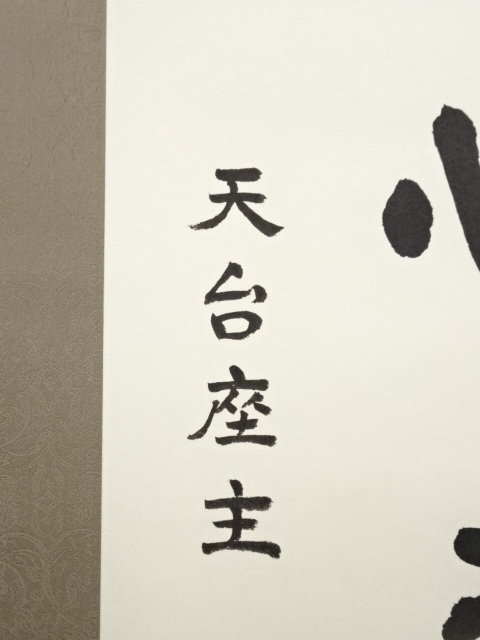 天台座主